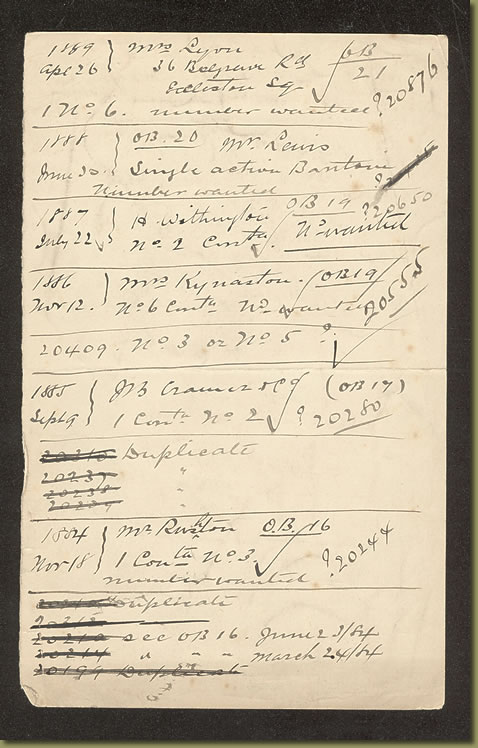 1889 } Mrs Lyon OB
Apl 26 } 36 Belgrave Rd 21
Eccleston Sq
1 No. 6. number wanted ? 20876
1888 } OB. 20 Mr. Lewis
June 20 } Single action Baritone
Number wanted ?
1887 } H. Withington OB 19 ? 20650
July 22 } No 2 Conta No wanted
1886 } Mrs Kynaston. OB19
Nov 12. } No 6 Conta No wanted 20555
20409. No 3 or No 5 ?
1885 } JB Cramer & Co (OB 17)
Sept 9 } 1 Conta No 2 ? 20280
Duplicate
20237 "
20238 "
20239
1884 } Mr. Rushton O.B. 16
Nov 18 } 1 Conta No. 3 ? 20244
number wanted
Duplicate
20212
20210 see OB 16. June 23/84
20214 " " " March 24/84
20199 Duplicate